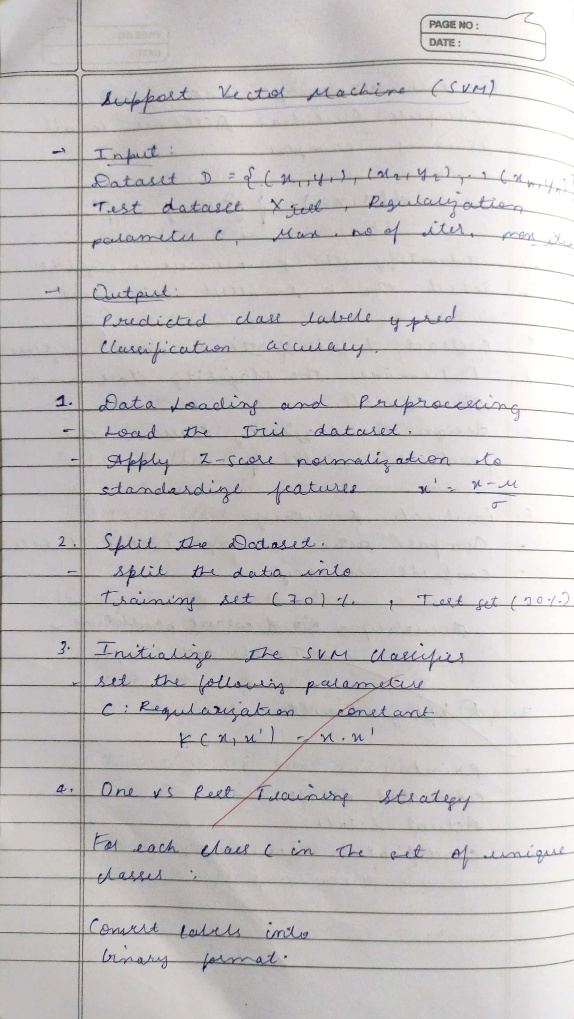 PAGE NO :
DATE :
Support Vector Machine (SVM)
→ Input :
Dataset D = { (x₁, y₁), (x₂, y₂), .., (xₙ, yₙ)
Test dataset X test, Regularization
parameter C, Max. no of iter, max
→ Output :
Predicted class labels y pred
Classification accuracy.
1. Data Loading and Preprocessing
- Load the Iris dataset.
- Apply Z-score normalization to
standardize features x' = x-μ/σ
2. Split the Dataset.
- split the data into
Training set (70) %. , Test set (30%)
3. Initialize the SVM classifier
- set the following parameters
C : Regularization constant
K(x, x') = x . x'
4. One vs Rest Training Strategy
For each class C in the set of unique
classes :
Convert labels into
binary format.